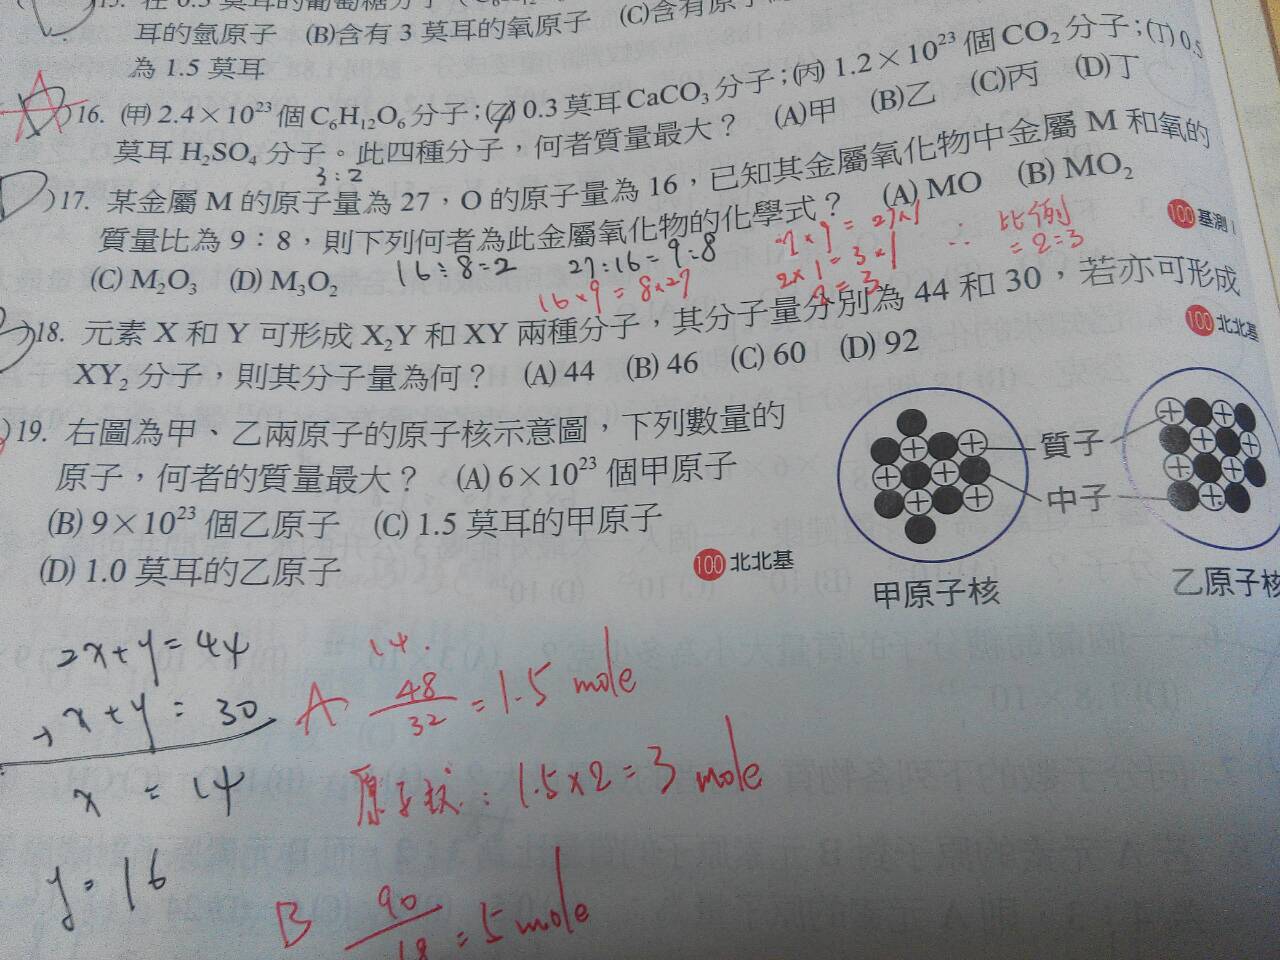 15. 在 0.5 莫耳的葡萄糖分子
耳的氫原子 (B)含有 3 莫耳的氧原子 (C)含有原子
為 1.5 莫耳
A
)16. (甲) 2.4×10²³ 個 C₆H₁₂O₆ 分子；(乙) 0.3 莫耳 CaCO₃ 分子；(丙) 1.2×10²³ 個 CO₂ 分子；(丁) 0.5
莫耳 H₂SO₄ 分子。此四種分子，何者質量最大？ (A)甲 (B)乙 (C)丙 (D)丁
3:2
)17. 某金屬 M 的原子量為 27，O 的原子量為 16，已知其金屬氧化物中金屬 M 和氧的
質量比為 9：8，則下列何者為此金屬氧化物的化學式？ (A) MO (B) MO₂
(C) M₂O₃ (D) M₃O₂
100 基測
16÷8=2
27:16=9:8
16×9=8×27
2×1=3×1
2=3
∴ 比例
=2=3
)18. 元素 X 和 Y 可形成 X₂Y 和 XY 兩種分子，其分子量分別為 44 和 30，若亦可形成
XY₂ 分子，則其分子量為何？ (A) 44 (B) 46 (C) 60 (D) 92
100 北北基
)19. 右圖為甲、乙兩原子的原子核示意圖，下列數量的
原子，何者的質量最大？ (A) 6×10²³ 個甲原子
(B) 9×10²³ 個乙原子 (C) 1.5 莫耳的甲原子
(D) 1.0 莫耳的乙原子
100 北北基
質子
中子
甲原子核
乙原子核
2x+y=44
x+y=30
x=14
y=16
14.
A 48/32 = 1.5 mole
原子數：1.5×2=3 mole
B 90/18 = 5 mole